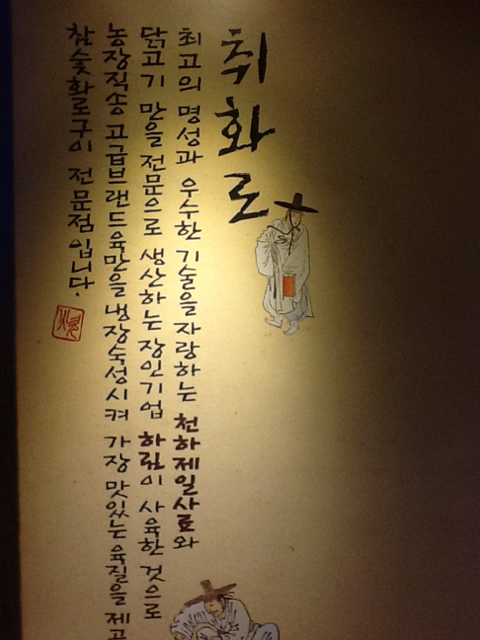 취화로
최고의 명성과 우수한 기술을 자랑하는 천하제일사료와
닭고기 만을 전문으로 생산하는 장인기업 하림이 사육한 것으로
농장직송 고급브랜드육만을 냉장숙성시켜 가장 맛있는 육질을
참숯화로구이 전문점입니다.